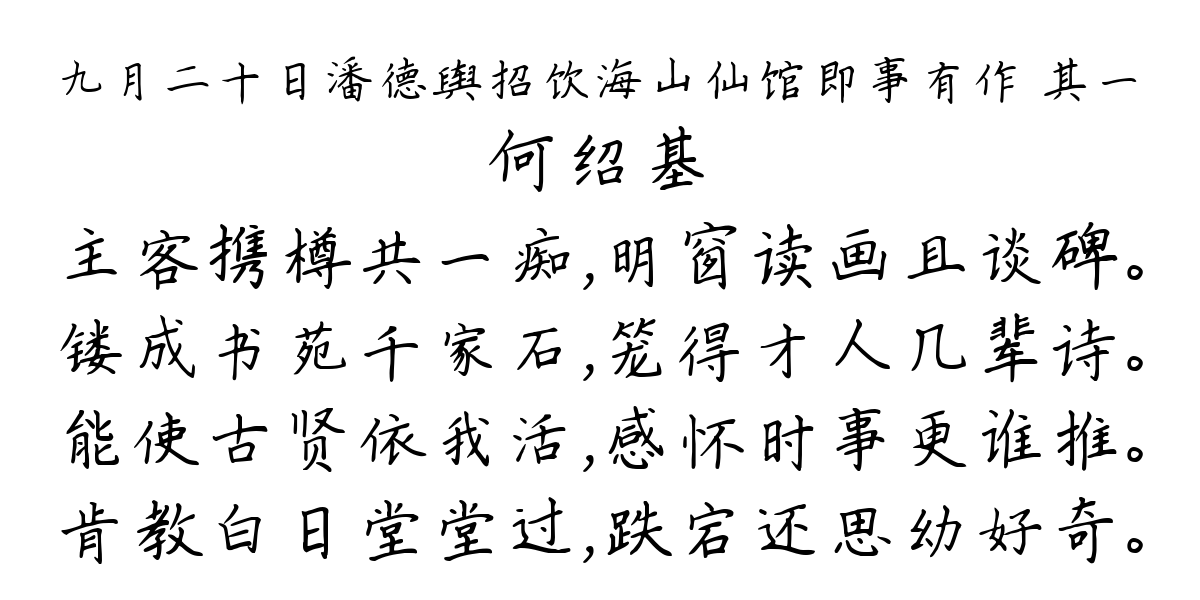 九月二十日潘德舆招饮海山仙馆即事有作 其一
何绍基
主客携樽共一痴,明窗读画且谈碑。
镂成书苑千家石,笼得才人几辈诗。
能使古贤依我活,感怀时事更谁推。
肯教白日堂堂过,跌宕还思幼好奇。